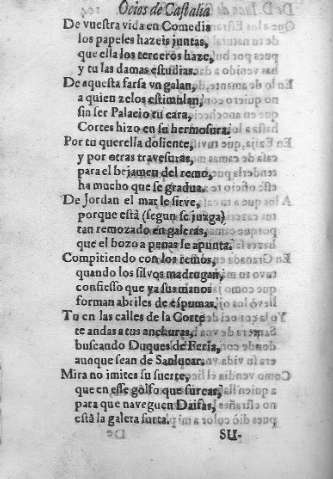 Ocios de Castalia
De vuestra vida en Comedia
los papeles hazeis juntas,
que ella los terceros haze,
y tu las damas estudias.
De aquesta farsa vn galan,
a quien zelos estimulan,
sin ser Palacio tu cara,
Cortes hizo en su hermosura.
Por tu querella doliente,
y por otras trauesuras,
para el bejamen del remo,
ha mucho que se gradua.
De Jordan el mar le sieve,
porque està (segun se juzga)
tan remozado en galeras,
que el bozo a penas se apunta.
Compitiendo con los remos,
quando los siluos madrugan,
confiesso que ya sus manos
forman abriles de espumas.
Tu en las calles de la Corte
te andas a tus anchuras,
buscando Duques de Feria,
aunque sean de Sanlucar.
Mira no imites su suerte,
que en esse golfo que surcas,
para que naueguen Daifas,
està la galera surta.
SU-